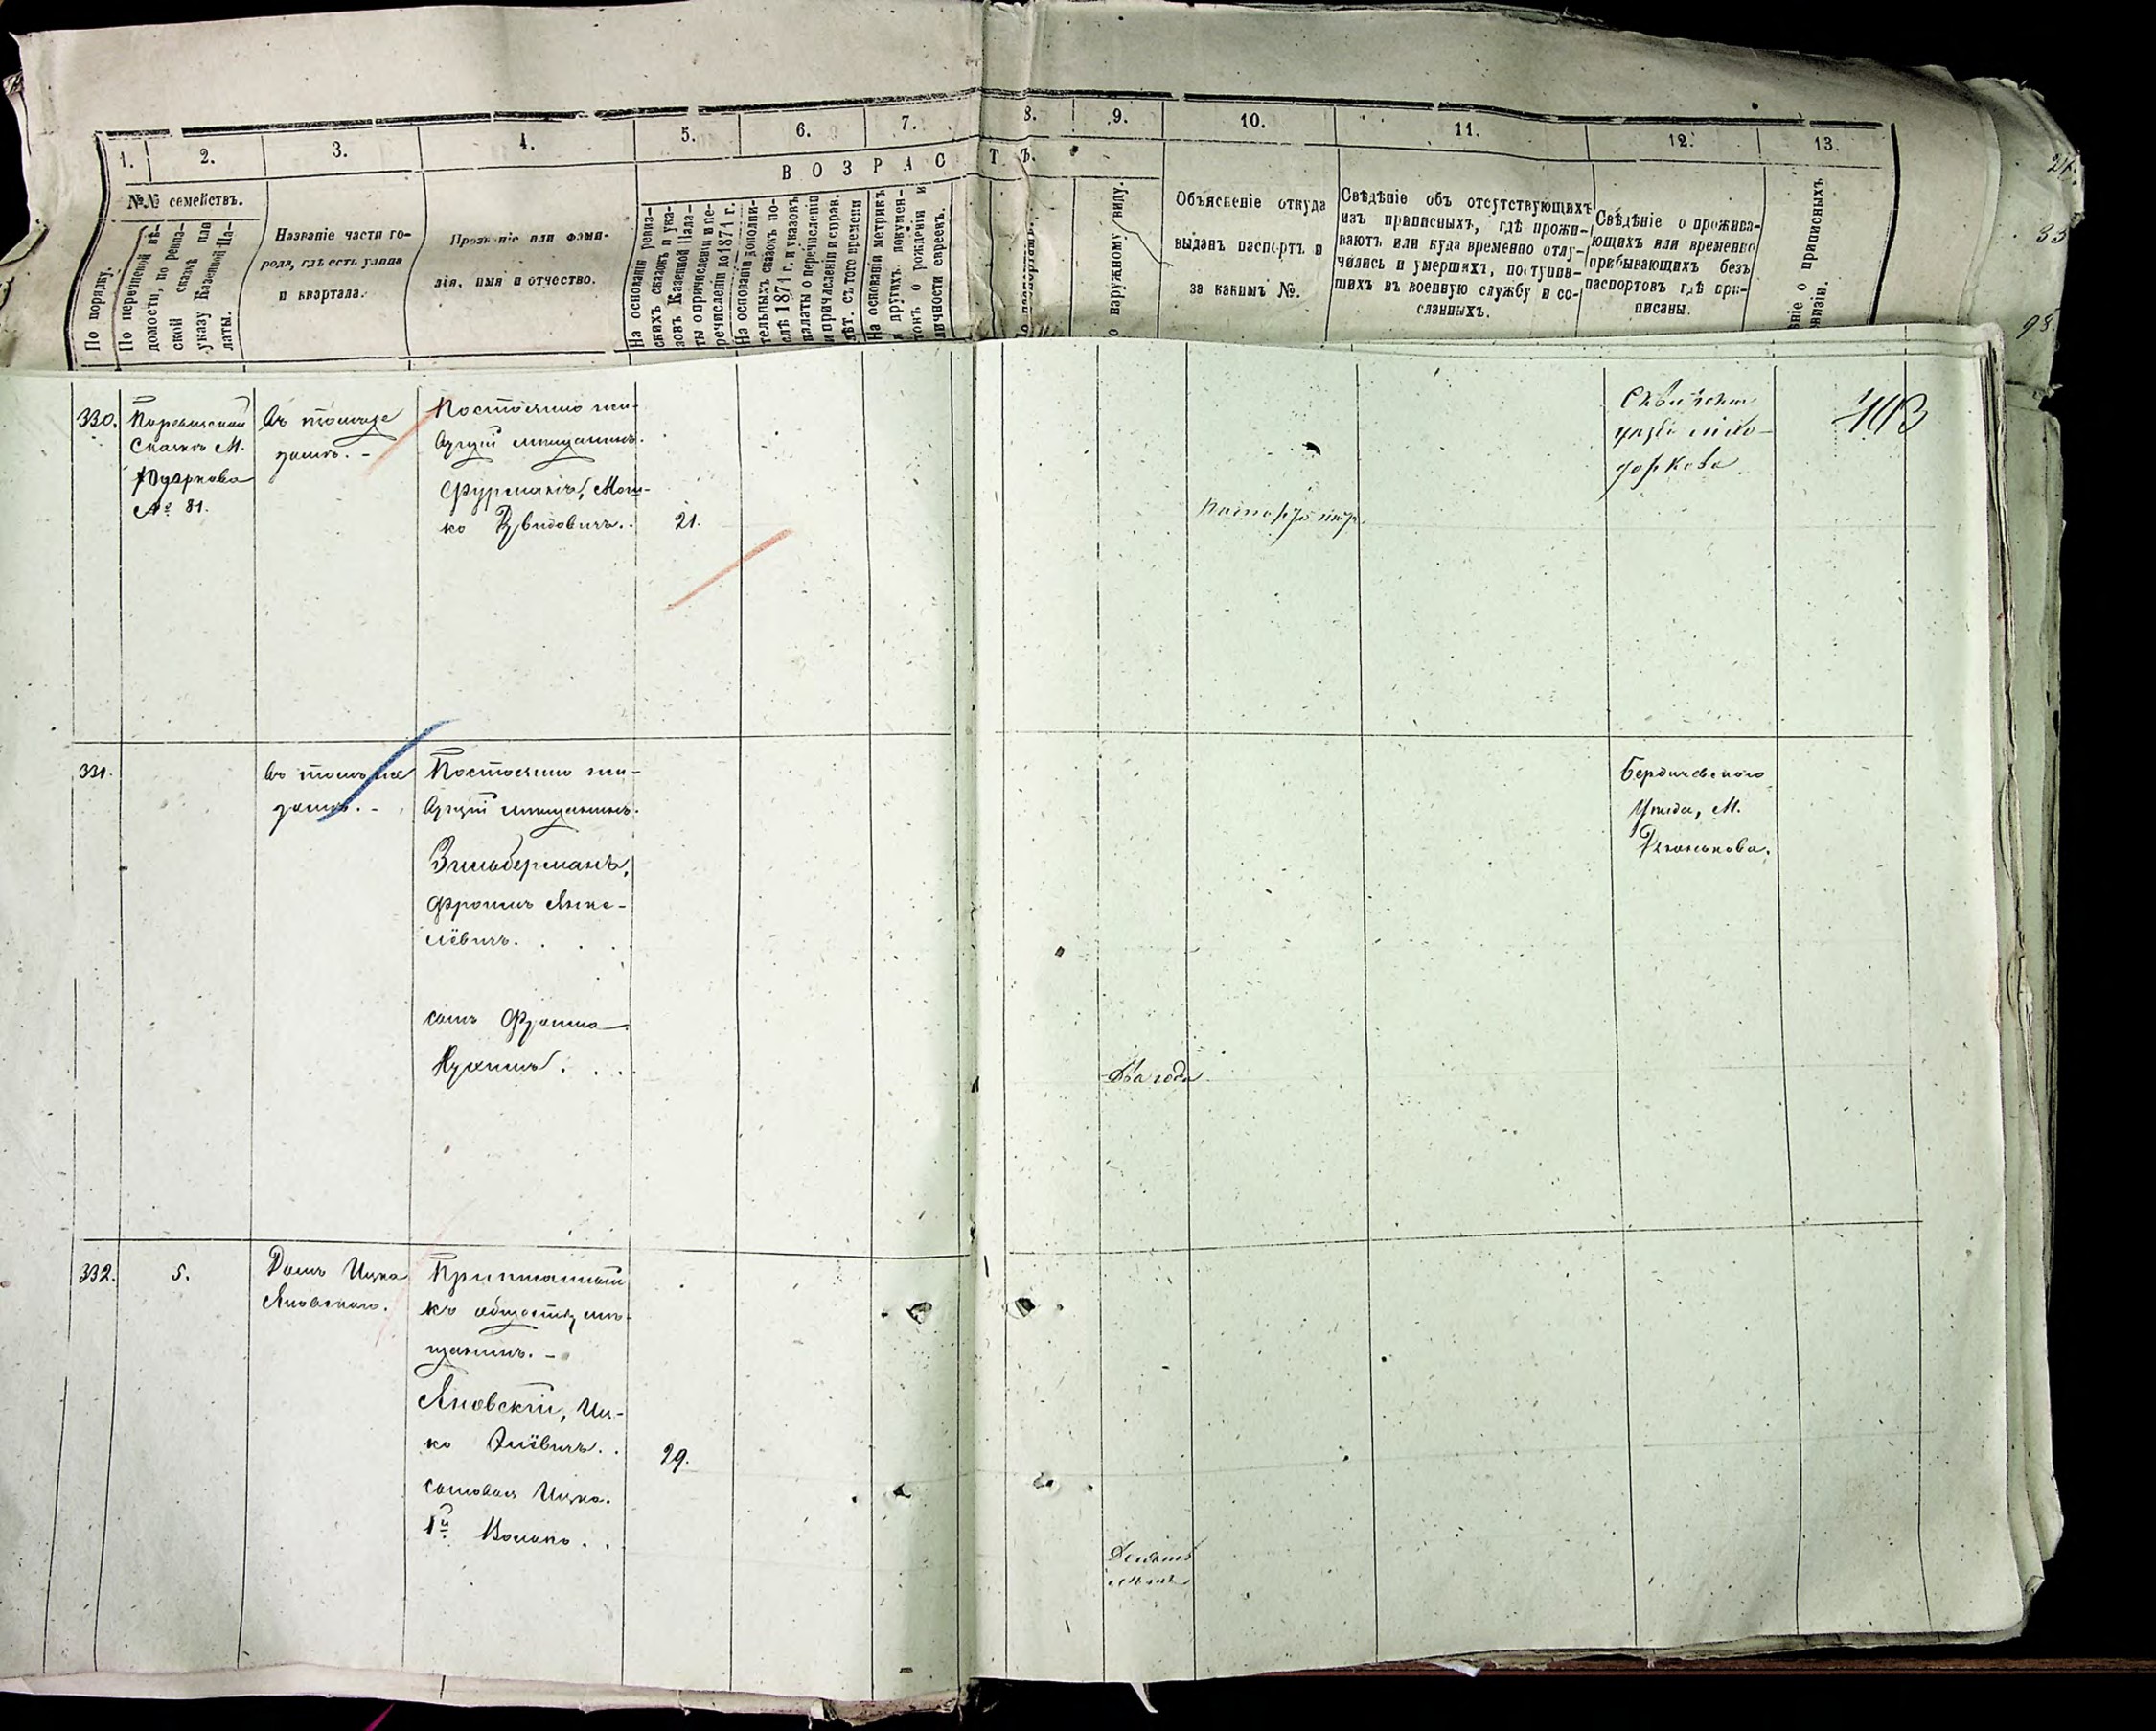 1.
2.
3.
4.
5.
6.
7.
8.
9.
10.
11.
12.
13.
ВОЗРАСТЪ.
№№ семействъ.
По порядку.
По перечневой вѣ-
домости, по ревиз-
ской сказкѣ или
указу Казенной Па-
латы.
Названіе части го-
рода, гдѣ есть улица
и квартала.
Прозваніе или фами-
лія, имя и отчество.
На основаніи ревиз-
скихъ сказокъ и ука-
зовъ Казенной Пала-
ты о причисленіи и пе-
речисленіи до 1871 г.
На основаніи дополни-
тельныхъ сказокъ по-
слѣ 1871 г. и указовъ
палаты о перечисленіи
и причисленіи и справ.
лѣт. съ того времени
На основаніи метрикъ
и другихъ докумен-
товъ о рожденіи и
личности евреевъ.
наружному виду.
Объясненіе откуда
выданъ паспортъ и
за какимъ №.
Свѣдѣніе объ отсутствующихъ
изъ приписныхъ, гдѣ прожи-
ваютъ или куда временно отлу-
чились и умершихъ, поступив-
шихъ въ военную службу и со-
сланныхъ.
Свѣдѣніе о прожива-
ющихъ или временно
прибывающихъ безъ
паспортовъ гдѣ при-
писаны.
о приписныхъ
403
330.
По ревизской
Сказкѣ М.
Ходоркова
№ 81.
Въ томъ же
домѣ. -
Постоянно жи-
вущій мѣщанинъ.
Фурманъ, Мош-
ко Дувидовичъ..
21.
Сквирскаго
уѣзда м. Хо-
доркова
331.
Въ томъ же
домѣ. -
Постоянно жи-
вущій мѣщанинъ.
Зильберманъ,
Фроимъ Янке-
лёвичъ. . . .
сынъ Фроима
Нухимъ. . . .
Два года
Бердичевскаго
Уѣзда, М.
Дзюнькова.
332.
5.
Домъ Ицка
Яновскаго.
Приписанный
къ обществу мѣ-
щанинъ. -
Яновскій, Иц-
ко Элёвичъ. .
29.
сыновья Ицка.
1й Волько. .
Девять
лѣтъ